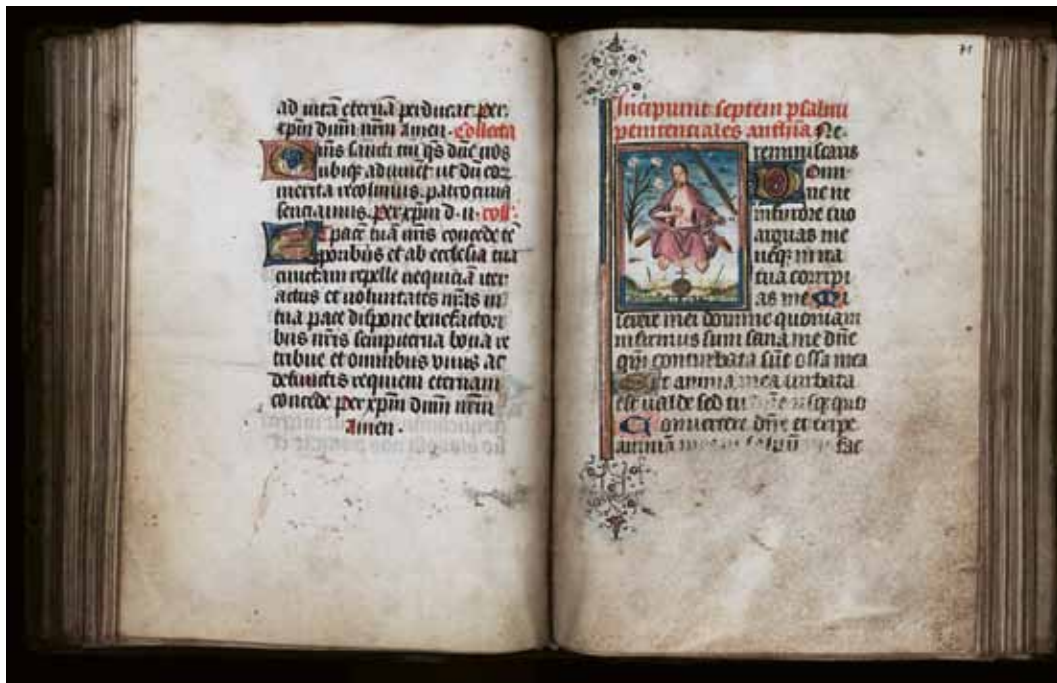 ad uitā eternā perducat per
xpm dnm nrm amen. Collecta
Oms sancti tui qs dne nos
ubiqȝ adiuuet ut du eoꝝ
merita recolimus. patrocinia
senciamus. Per xpm d. n. coll'.
Et pacē tuā nris concede tē
poribus et ab ecclesia tua
cunctam repelle nequiciā iter
actus et uoluntates nras in
tua pace dispone benefactori
bus nris sempiterna bona re
tribue et omnibus uiuis ac
defunctis requiem eternam
concede Per xpm dnm nrm
amen.
71
Incipiunt septem psalmi
penitenciales anthia Ne
reminiscaris
Domi
ne ne
in furore tuo
arguas me
neqȝ in ira
tua corripi
as me Mi
serere mei domine quoniam
infirmus sum sana me dne
qm conturbata sūt ossa mea
Et anima mea turbata
est ualde sed tu dne usqȝ quo
Conuertere dne et eripe
animā meam saluū fac